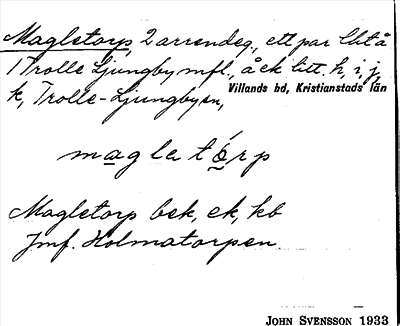 Magletorp, 2 arrendeg., ett par lht å
1 Trolle Ljungby mfl., å ek litt. h, i, j,
k, Trolle-Ljungby sn,
Villands hd, Kristianstads län
magla tórp
Magletorp bek, ek, kb
Jmf. Holmatorpen
JOHN SVENSSON 1933